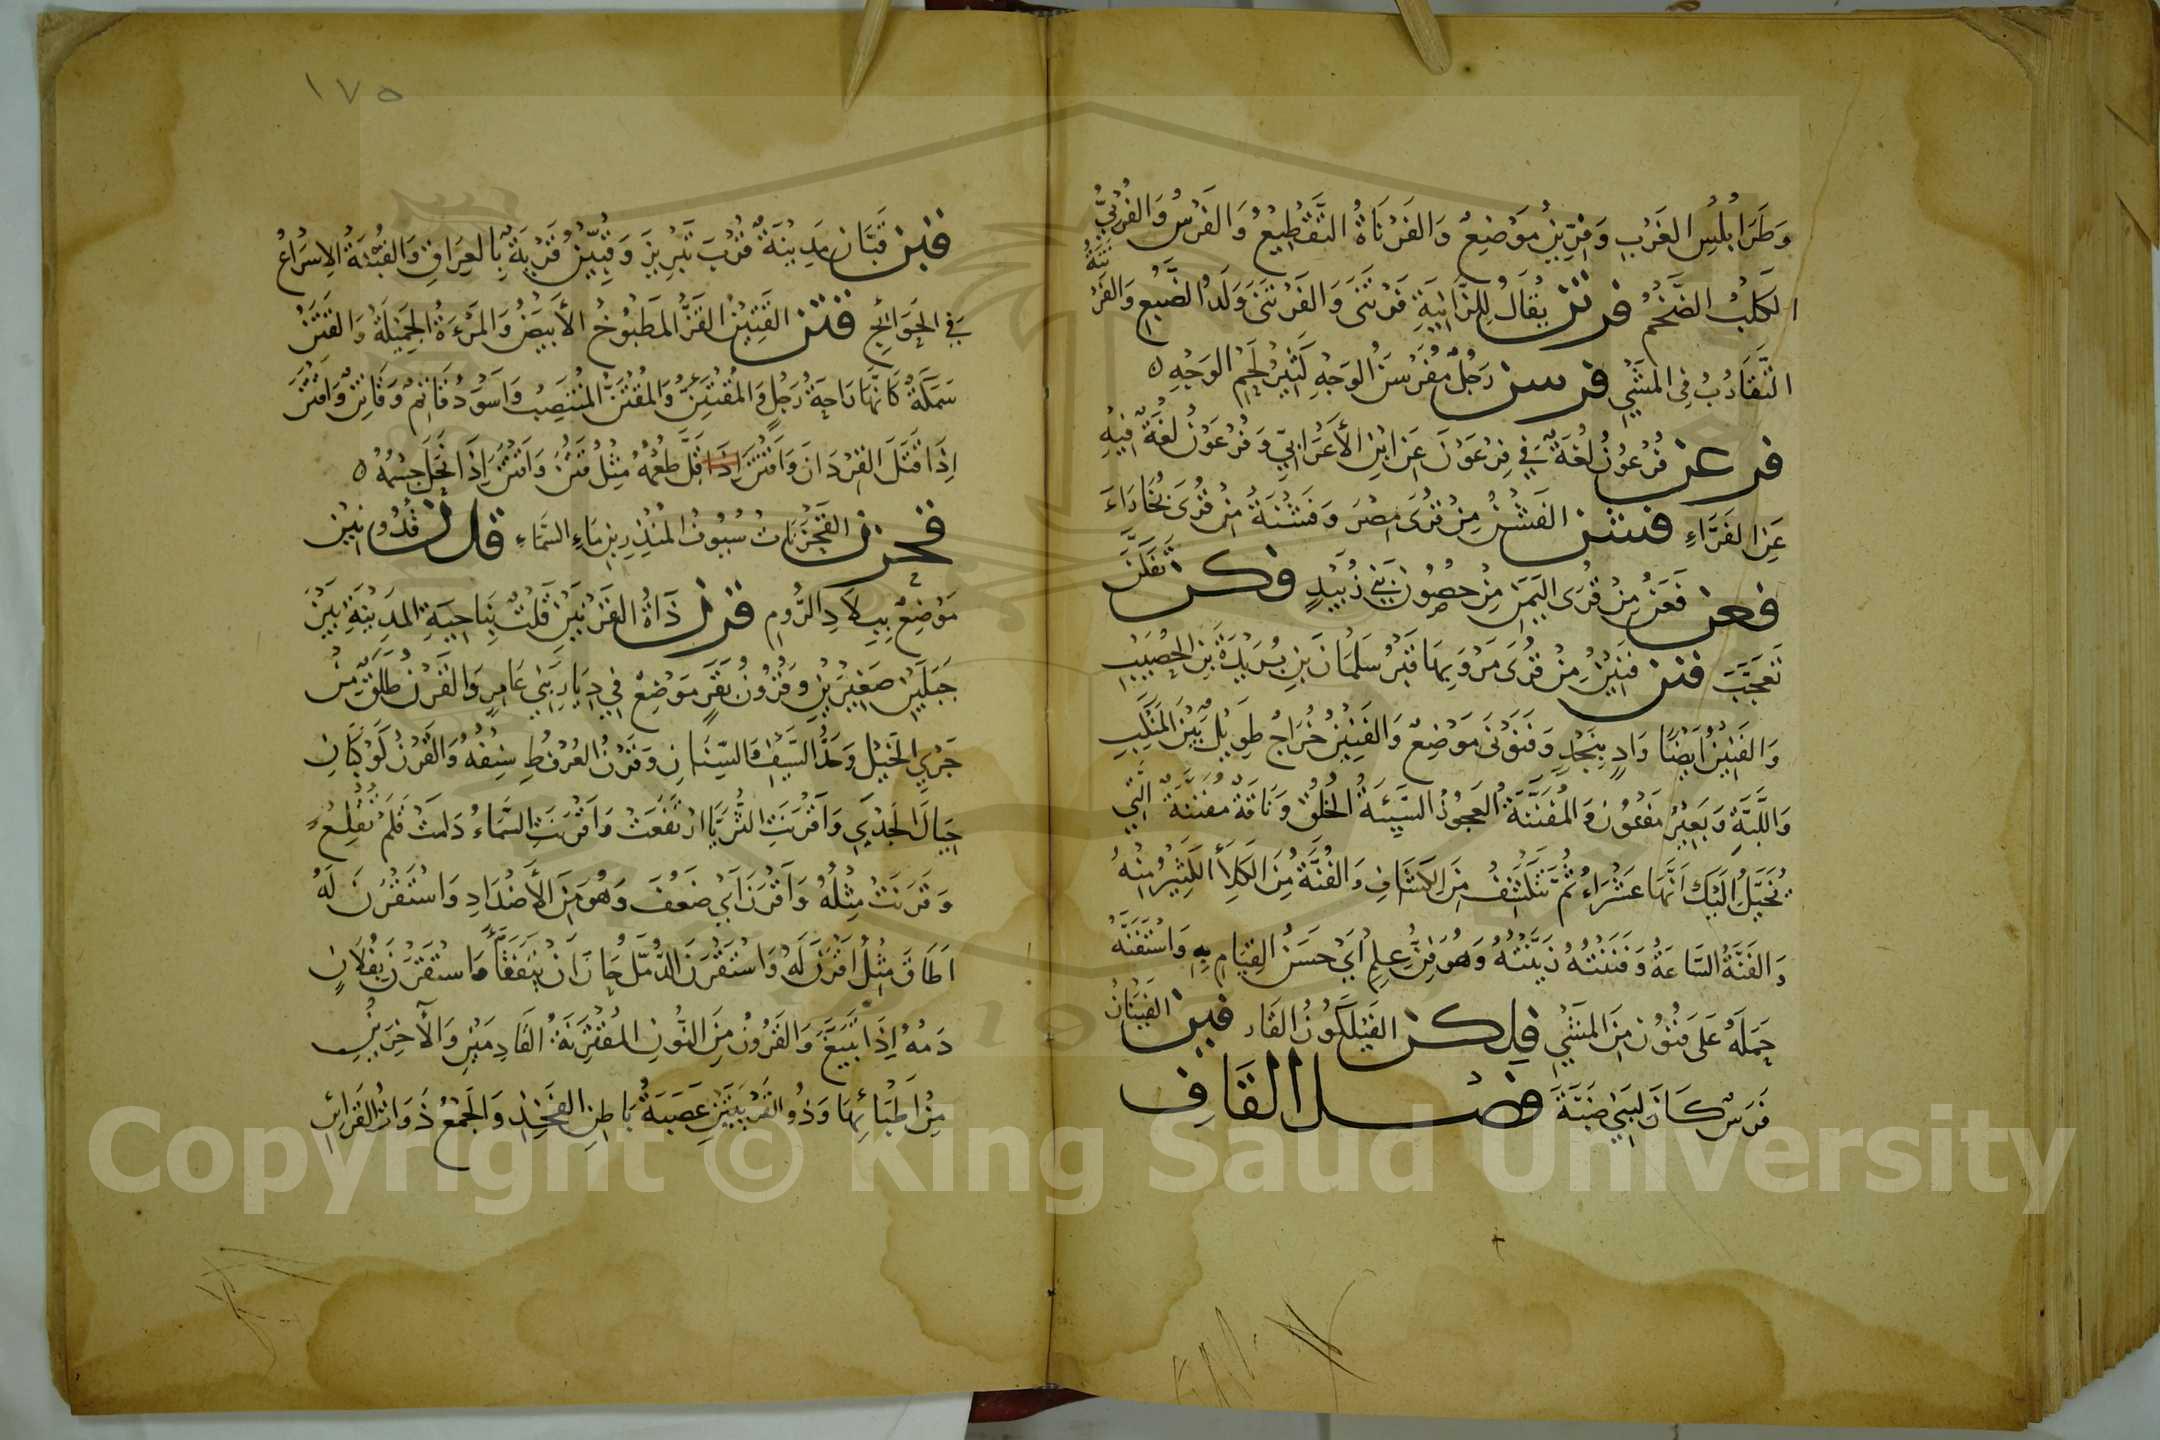 وَطَرَابُلُسِ الغَرْبِ وَفِرِّينُ مَوْضِعٌ وَالفَرْنَاةُ التَّقْطِيعُ وَالفَرْسُ وَالفُرْنِيُّ
الكَلْبُ الضَّخْمُ فرتن يُقَالُ لِلزَّانِيَةِ فَرْتَنَى وَالفَرْتَنَى وَلَدُ الضَّبُعِ وَالفَرْتَنَةُ
التَّقَارُبُ فِي المَشْيِ فرسن رَجُلٌ مُفَرْسَنُ الوَجْهِ كَثِيرُ لَحْمِ الوَجْهِ ه
فرعن فُرْعُونُ لُغَةٌ فِي فِرْعَوْنَ عَنِ ابْنِ الأَعْرَابِيِّ وَفُرْعَوْنُ لُغَةٌ فِيهِ
عَنِ الفَرَّاءِ فشن الفَشْنُ مِنْ قُرَى مِصْرَ وَفَشْنَةُ مِنْ قُرَى بُخَارَاءَ
فعن فَعَنُ مِنْ قُرَى اليَمَنِ مِنْ حُصُونِ بَنِي زُبَيْدٍ فكن تَفَكَّنَ
تَعَجَّبَ فنن فَنِينُ مِنْ قُرَى مَرْوَ بِهَا قَبْرُ سُلَيْمَانَ بْنِ بُرَيْدَةَ بْنِ الحُصَيْبِ
وَالفَنِينُ أَيْضًا وَادٍ بِنَجْدٍ وَفَنَوْنَى مَوْضِعٌ وَالفَنِينُ خُرَاجٌ طَوِيلٌ بَيْنَ المَنْكِبِ
وَاللَّبَّةِ وَبَعِيرٌ مَفْنُونٌ وَالمُفَنَّنَةُ العَجُوزُ السَّيِّئَةُ الخُلُقِ وَنَاقَةٌ مُفَنَّنَةٌ الَّتِي
يُخَيَّلُ إِلَيْكَ أَنَّهَا عُشَرَاءُ ثُمَّ تَنْكَشِفُ مِنَ الكِشَافِ وَالفُنَّةُ مِنَ الكَلَأِ الكَثِيرُ مِنْهُ
وَالفَنَّةُ السَّاعَةُ وَفَنَنْتُهُ زَيَّنْتُهُ وَهُوَ فِنُّ عِلْمٍ أَيْ حَسَنُ القِيَامِ بِهِ وَاسْتَفَنَّهُ
حَمَلَهُ عَلَى فُنُونٍ مِنَ المَشْيِ فلكن الفَيْلَكُونُ القَار فين الفَيْنَانُ
فَرَسٌ كَانَ لِبَنِي ضَبَّةَ فصل القاف
١٧٥
قبن قَبَّان مَدِينَةٌ قُرْبَ تَبْرِيزَ وَقِبِّينُ قَرْيَةٌ بِالعِرَاقِ وَالقُبْنَةُ الإِسْرَاعُ
فِي الحَوَائِجِ قتن القَتِينُ القَرُّ المَطْبُوخُ الأَبْيَضُ وَالمَرْءَةُ الجَمِيلَةُ وَالقَتَنُ
سَمَكَةٌ كَأَنَّهَا رَاحَةُ رَجُلٍ وَالمُقْتَئِنُّ وَالمُقْتَنُّ المُنْتَصِبُ وَأَسْوَدُ قَاتِمٌ وَقَاتِنٌ وَأَقْتَنَ
إِذَا قَتَلَ القِرْدَانَ وَأَقْتَنَ إِذَا قَلَّ طُعْمُهُ مِثْلُ قَتُنَ وَأَقْتَنَ إِذَا نَحَلَ جِسْمُهُ ه
قحزن القَحْزَنَاتُ سُيُوفُ المُنْذِرِ بْنِ مَاءِ السَّمَاءِ قدن قَدُونِينُ
مَوْضِعٌ بِبِلَادِ الرُّومِ قرن ذَاةُ القَرْنَيْنِ قَلْتٌ بِنَاحِيَةِ المَدِينَةِ بَيْنَ
جَبَلَيْنِ صَغِيرَيْنِ وَقُرُونُ بَقَرٍ مَوْضِعٌ فِي دِيَارِ بَنِي عَامِرٍ وَالقَرْنُ طَلَقٌ مِنْ
جَرْيِ الخَيْلِ وَحَدُّ السَّيْفِ وَالسِّنَانِ وَقَرْنُ العُرْفُطِ سِنْفُهُ وَالقَرْنُ كَوْكَبَانِ
حِيَالَ الجَدْيِ وَأَقْرَنَتِ الثُّرَيَّا ارْتَفَعَتْ وَأَقْرَنَتِ السَّمَاءُ دَامَتْ فَلَمْ تُقْلِعْ
وَقَرَنَتْ مِثْلُهُ وَأَقْرَنَ أَيْ ضَعُفَ وَهُوَ مِنَ الأَضْدَادِ وَاسْتَقْرَنَ لَهُ
أَطَاقَ مِثْلُ أَقْرَنَ لَهُ وَاسْتَقْرَنَ الدُّمَّلُ حَانَ أَنْ يَتَفَقَّأَ وَاسْتَقْرَنَ بِفُلَانٍ
دَمُهُ إِذَا تَبَيَّغَ وَالقَرُونُ مِنَ النُّوقِ المُقْتَرِنَةُ القَادِمَيْنِ وَالآخِرَيْنِ
مِنْ أَطْبَائِهَا وَذُو القَرْنَيْنِ عَصَبَةُ بَاطِنِ الفَخِذِ وَالجَمْعُ ذَوَاتُ القَرَائِنِ
Copyright © King Saud University